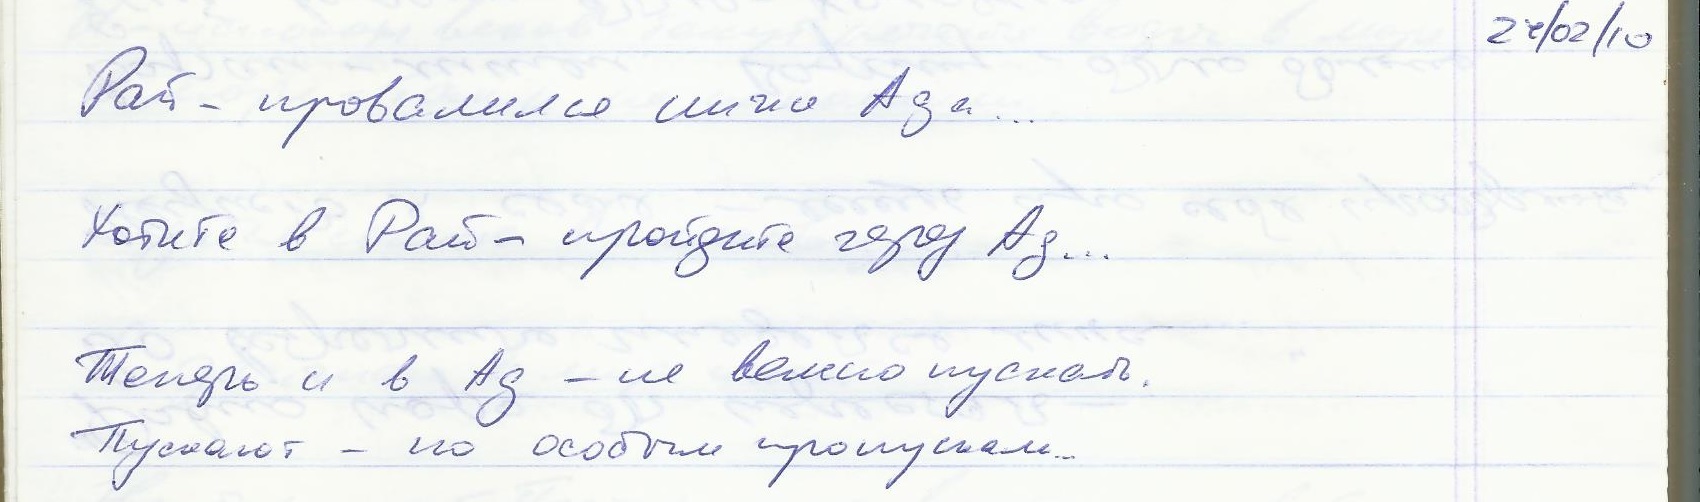 24/02/10
Рай - провалился ниже Ада...
Хотите в Рай - пройдите через Ад...
Теперь и в Ад - не велено пускать.
Пускают - по особым пропускам...